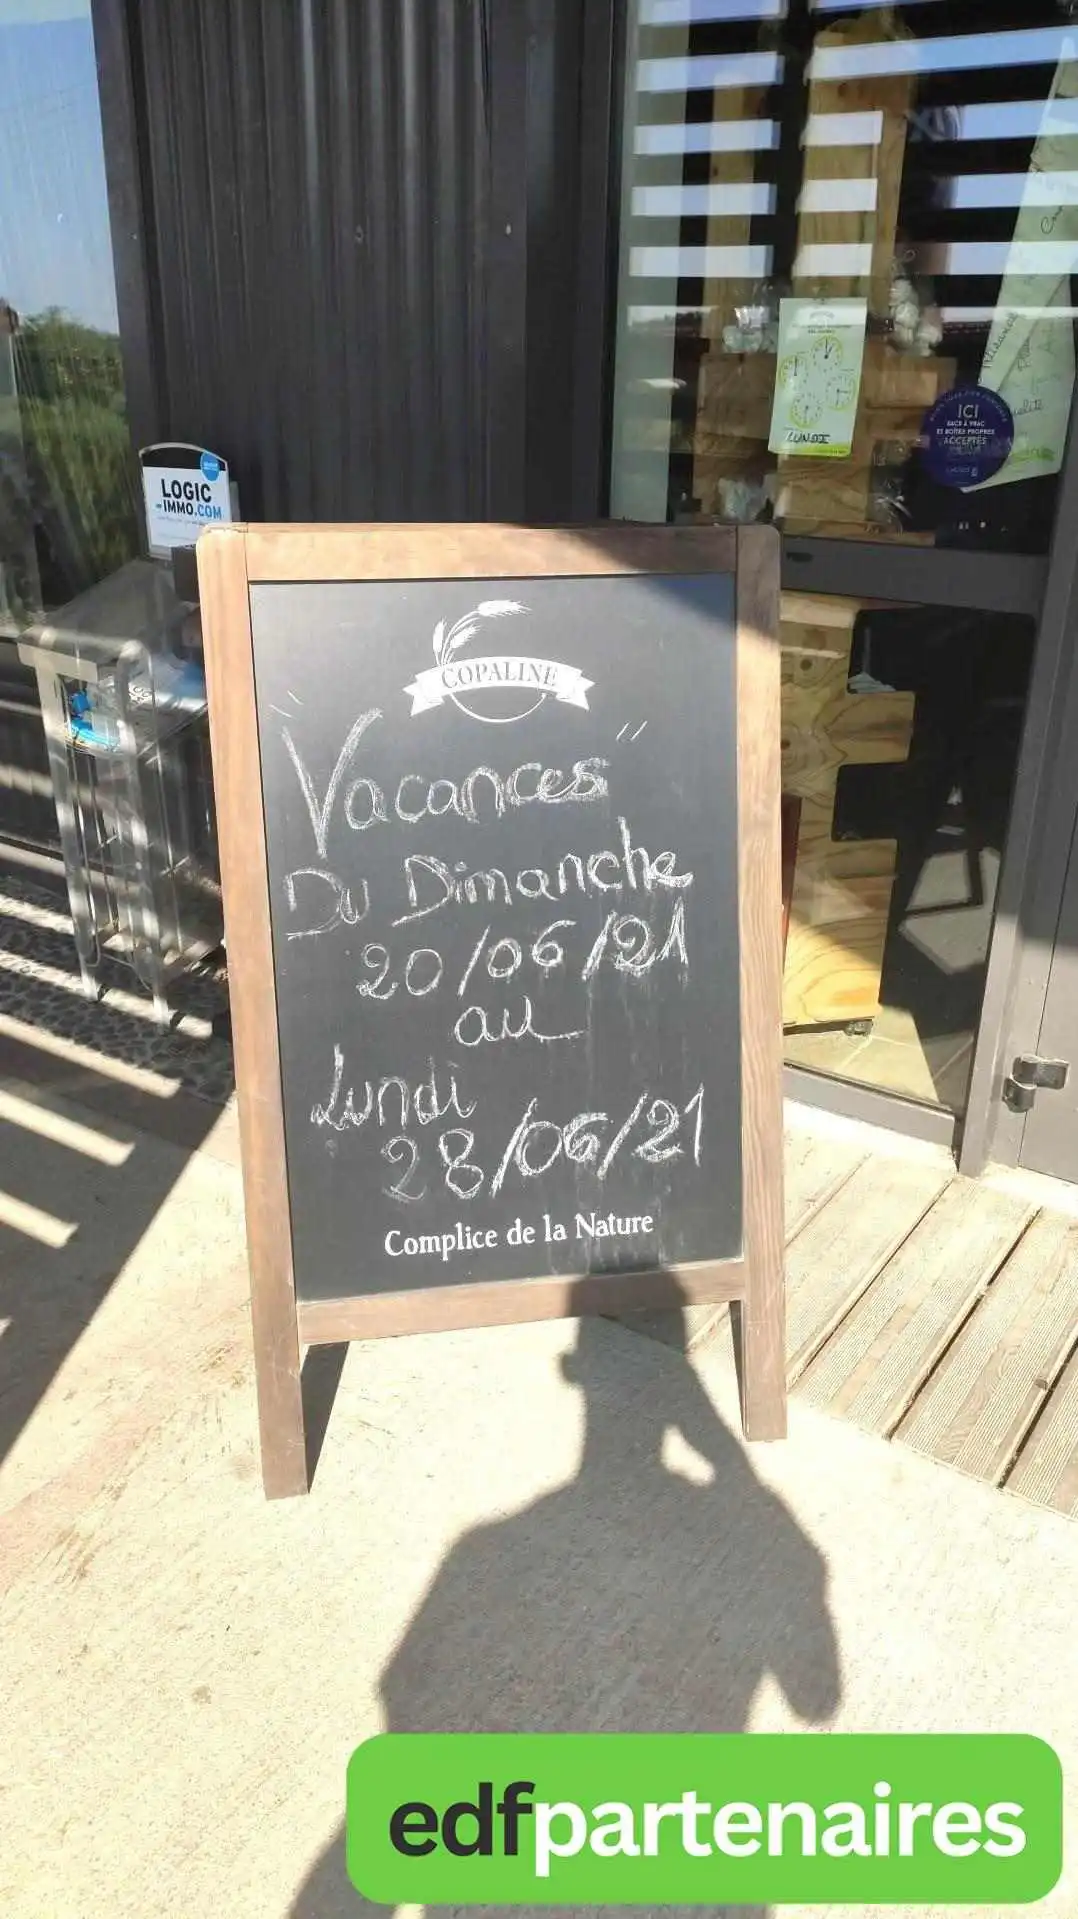 LOGIC
-IMMO.COM
LUNDI
ICI
SACS À VRAC
ET BOÎTES PROPRES
ACCEPTÉS
COPALINE
"Vacances"
Du Dimanche
20/06/21
au
Lundi
28/06/21
Complice de la Nature
edfpartenaires